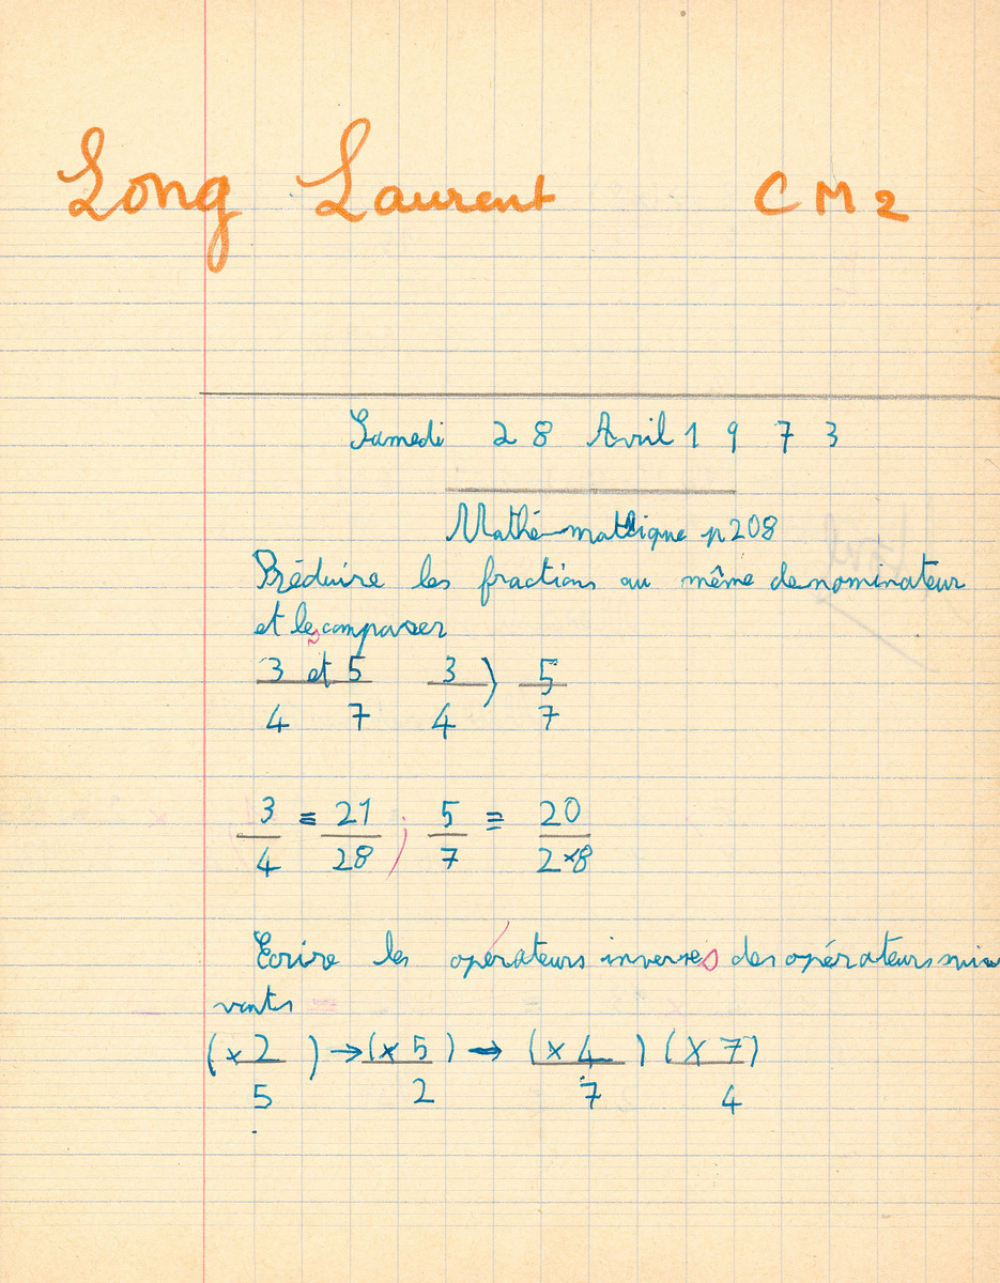 Long Laurent CM2
Samedi 28 Avril 1973
Mathé-matique p 208
Réduire les fractions au même denominateur
et les comparer
3/4 et 5/7 3/4 > 5/7
3/4 = 21/28 ; 5/7 = 20/28
Ecrire les opérateurs inverses des opérateurs sui
vants
(×2/5) → (×5/2) → (×4/7) (×7/4)